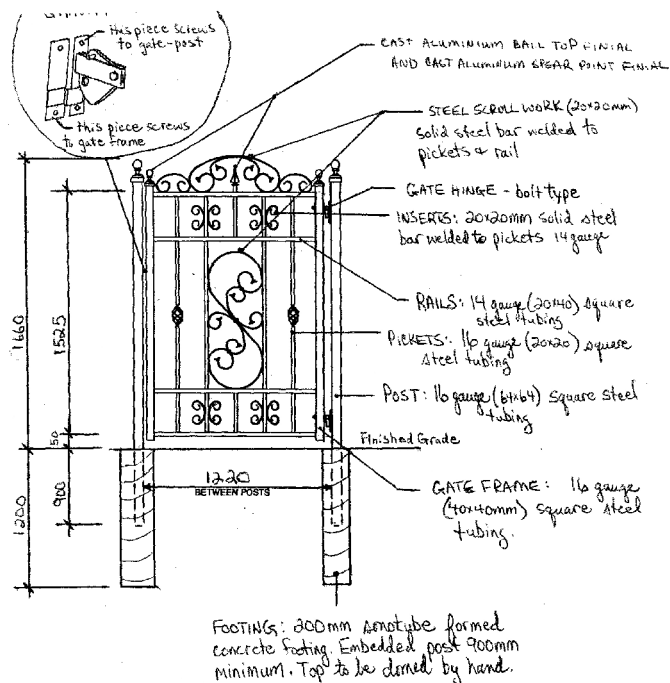 this piece screws
to gate-post
this piece screws
to gate frame
CAST ALUMINIUM BALL TOP FINIAL
AND CAST ALUMINUM SPEAR POINT FINIAL
STEEL SCROLL WORK (20x20mm)
solid steel bar welded to
pickets & rail
GATE HINGE - bolt type
INSERTS: 20x20mm solid steel
bar welded to pickets 14 gauge
RAILS: 14 gauge (20x40) square
steel tubing
PICKETS: 16 gauge (20x20) square
steel tubing
POST: 16 gauge (64x64) square steel
tubing
Finished Grade
GATE FRAME: 16 gauge
(40x40mm) square steel
tubing.
1660
1525
50
1200
900
1220
BETWEEN POSTS
FOOTING: 200mm sonotube formed
concrete footing. Embedded post 900mm
minimum. Top to be domed by hand.